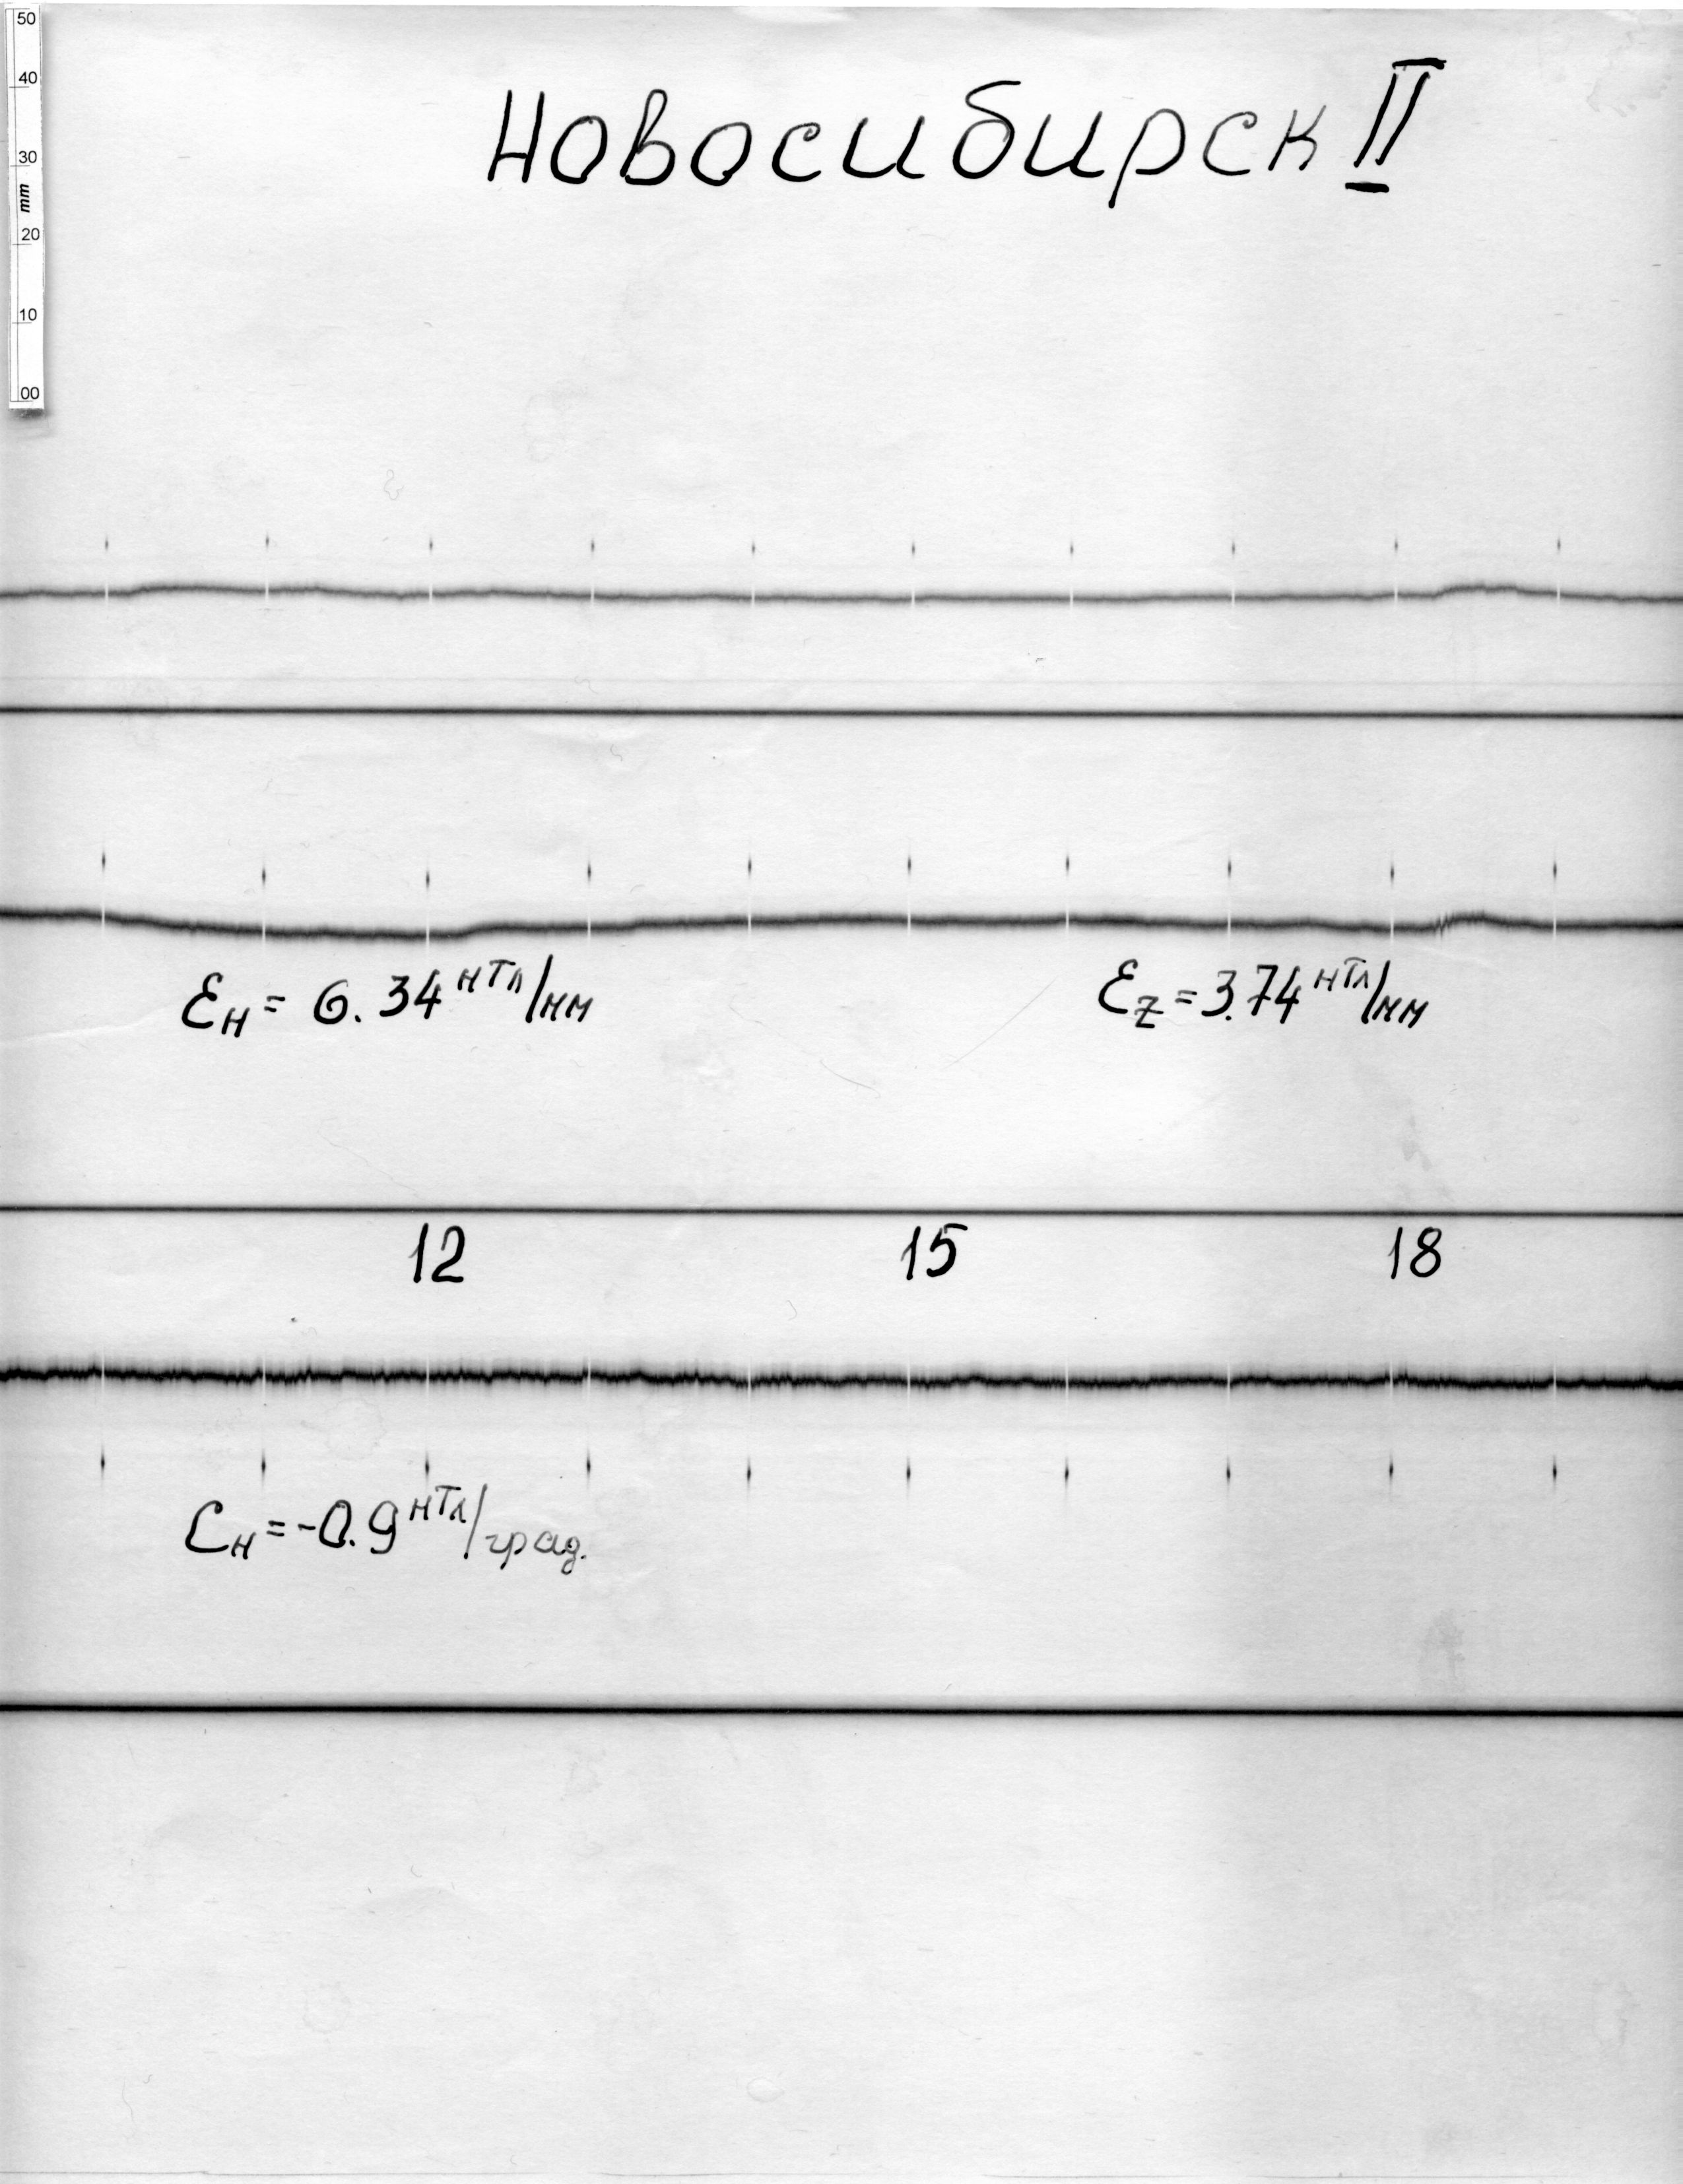 50
40
30
mm
20
10
00
Новосибирск II
Ɛн = 6.34 нТл/мм
Ɛz = 3.74 нТл/мм
12 15 18
Сн = -0.9 нТл/град.